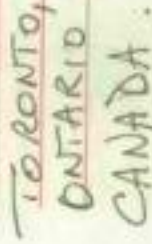 TORONTO,
ONTARIO
CANADA.